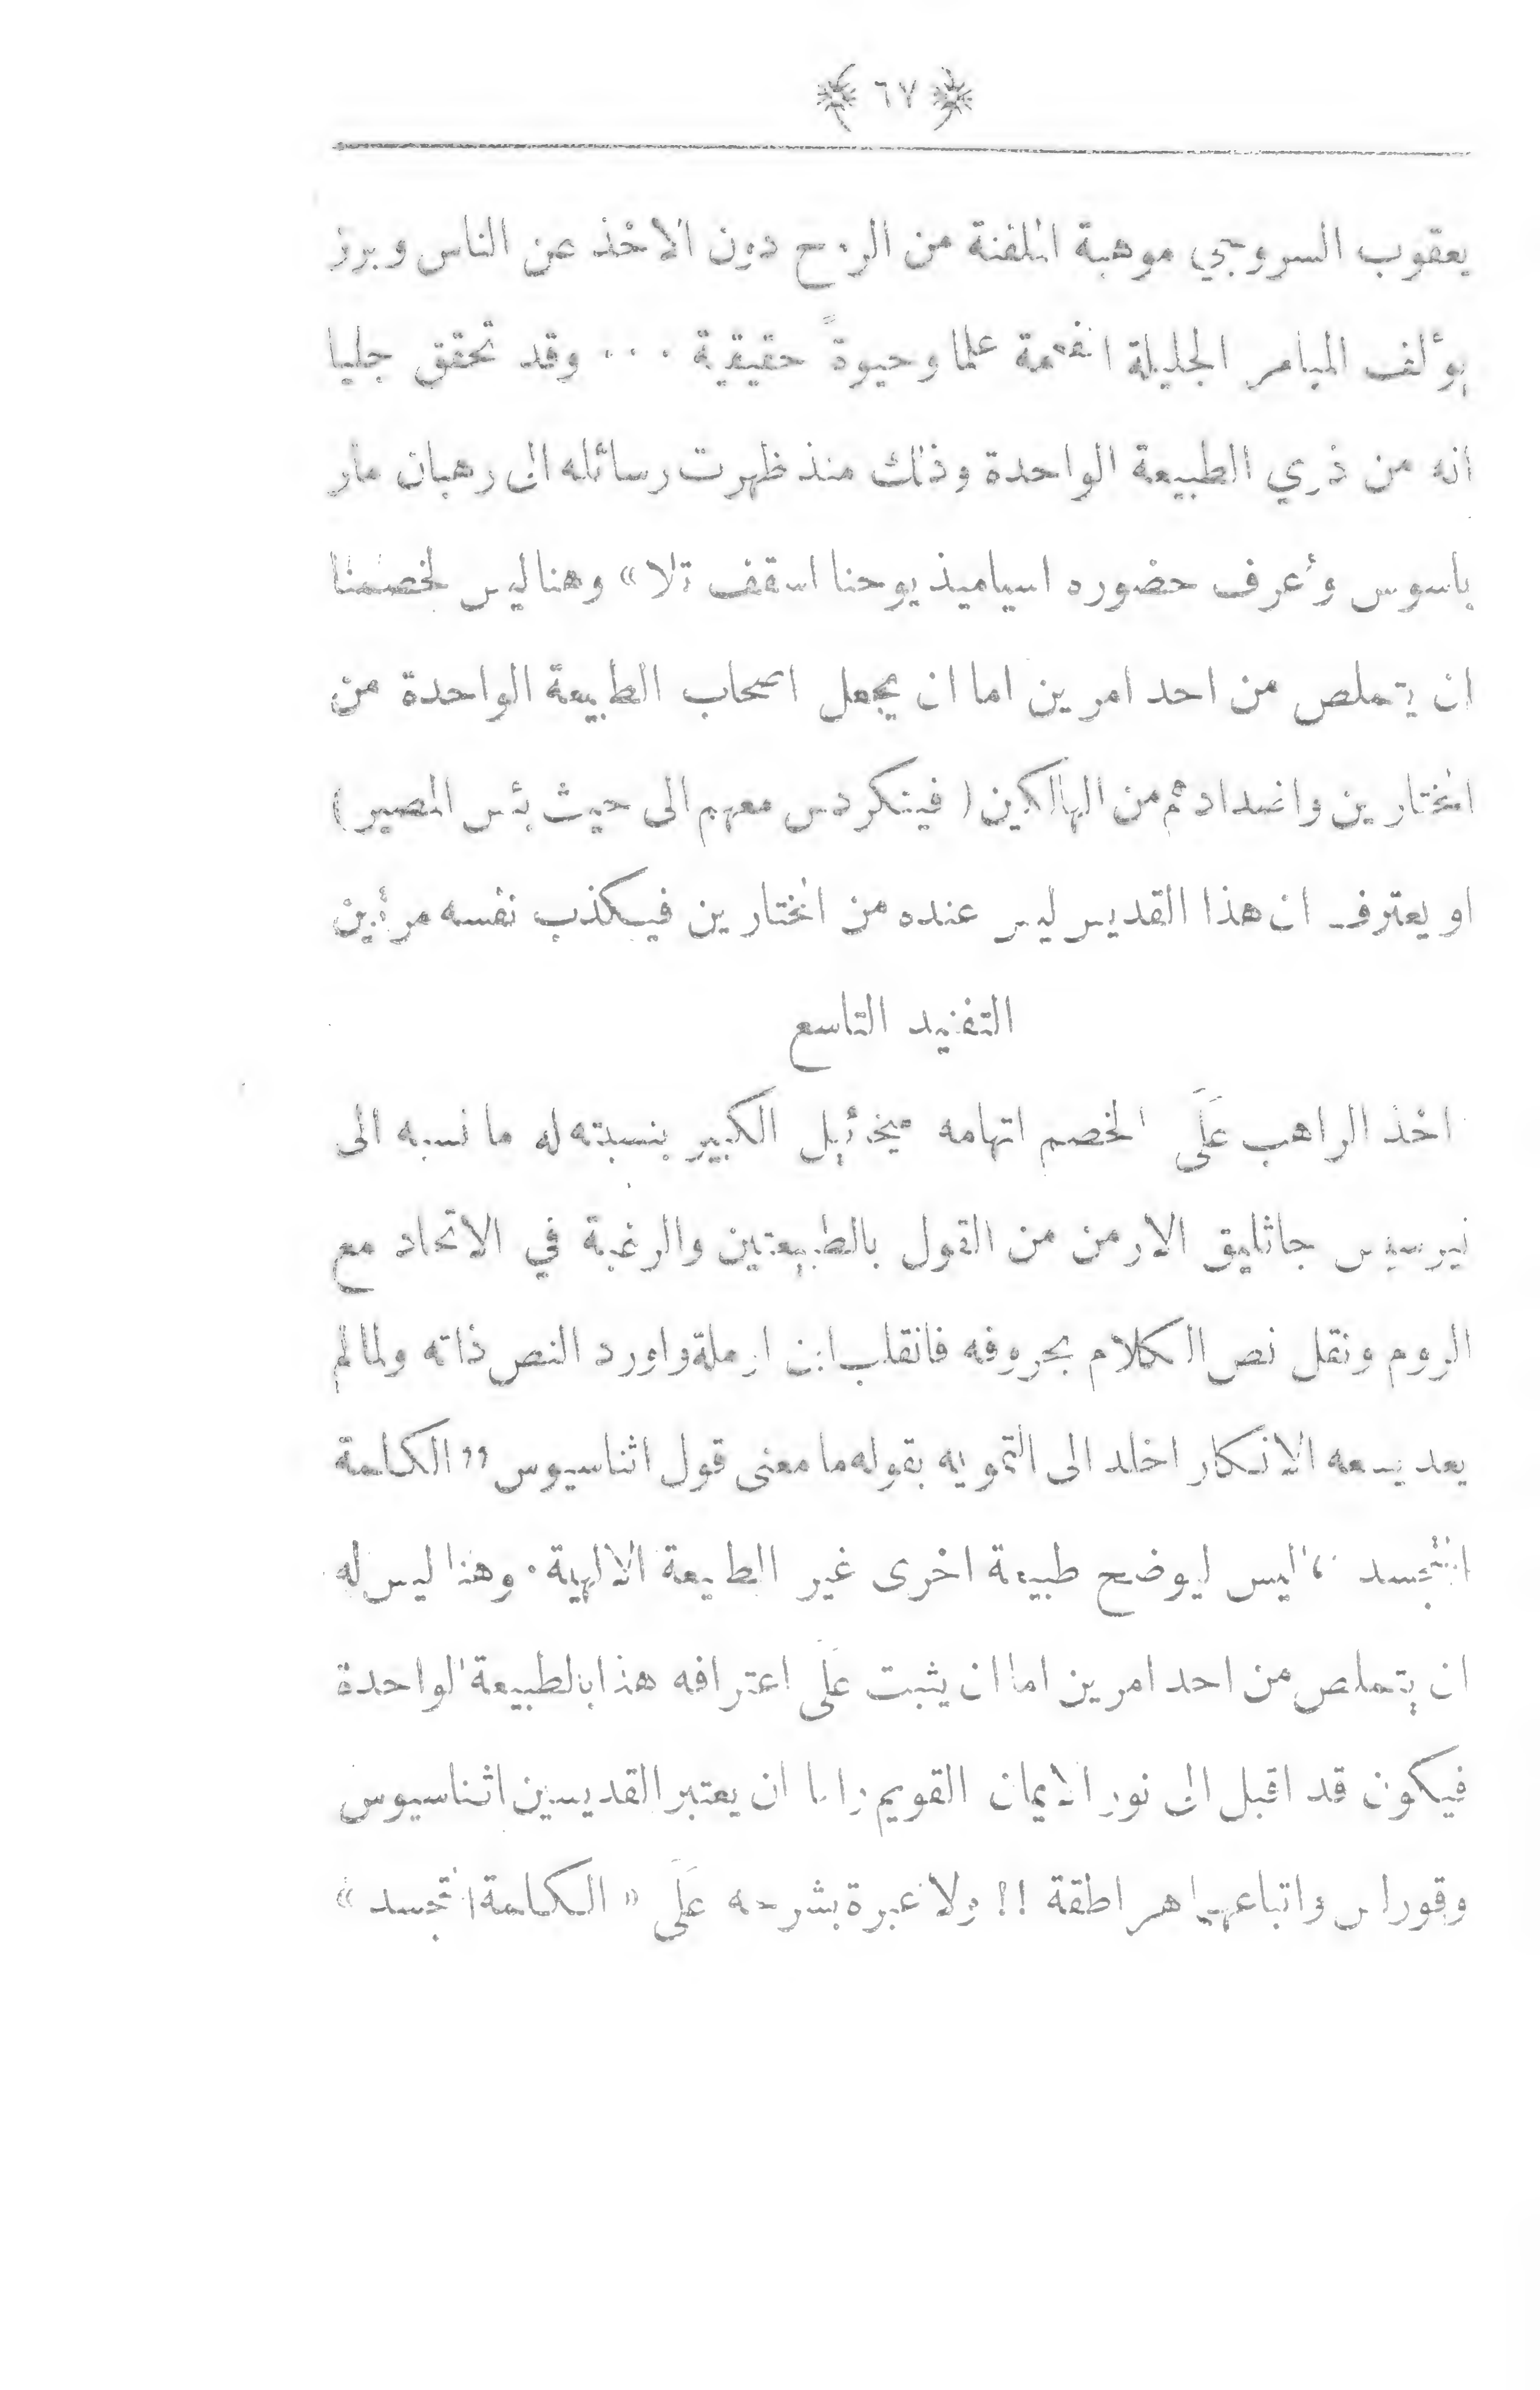 ٦٧
يعقوب السروجي موهبة الملفنة من الروح دون الاخذ عن الناس وبرز
يؤلف الميامر الجليلة المفعمة علما وحيوةً حقيقية ٠٠٠ وقد تحقق جليا
انه من ذوي الطبيعة الواحدة وذلك منذ ظهرت رسائله الى رهبان مار
باسوس وأعرف حضوره اسياميذ يوحنا اسقف تلا » وهنا ليس لخصمنا
ان يتملص من احد امرين اما ان يجعل اصحاب الطبيعة الواحدة من
المختارين واضدادهم من الهالكين ( فيتكردس معهم الى حيث بئس المصير )
او يعترف ان هذا القديس ليس عنده من المختارين فيكذب نفسه مرأين
التفنيد التاسع
اخذ الراهب عَلَى الخصم اتهامه ميخائيل الكبير بنسبته له ما نسبه الى
نيرسيس جاثليق الارمن من القول بالطبيعتين والرغبة في الاتحاد مع
الروم ونقل نص الكلام بحروفه فانقلب ابن ارملة واورد النص ذاته ولما لم
يعد يسعه الانكار اخلد الى التمويه بقوله ما معنى قول اثناسيوس ,, الكلمة
المتجسد ،، اليس ليوضح طبيعة اخرى غير الطبيعة الالهية ٠ وهنا ليس له
ان يتملص من احد امرين اما ان يثبت عَلَى اعترافه هذا بالطبيعة الواحدة
فيكون قد اقبل الى نور الايمان القويم واما ان يعتبر القديسين اثناسيوس
وقورلس واتباعهما هراطقة !! ولا عبرة بشرحه عَلَى « الكلمة المتجسد »